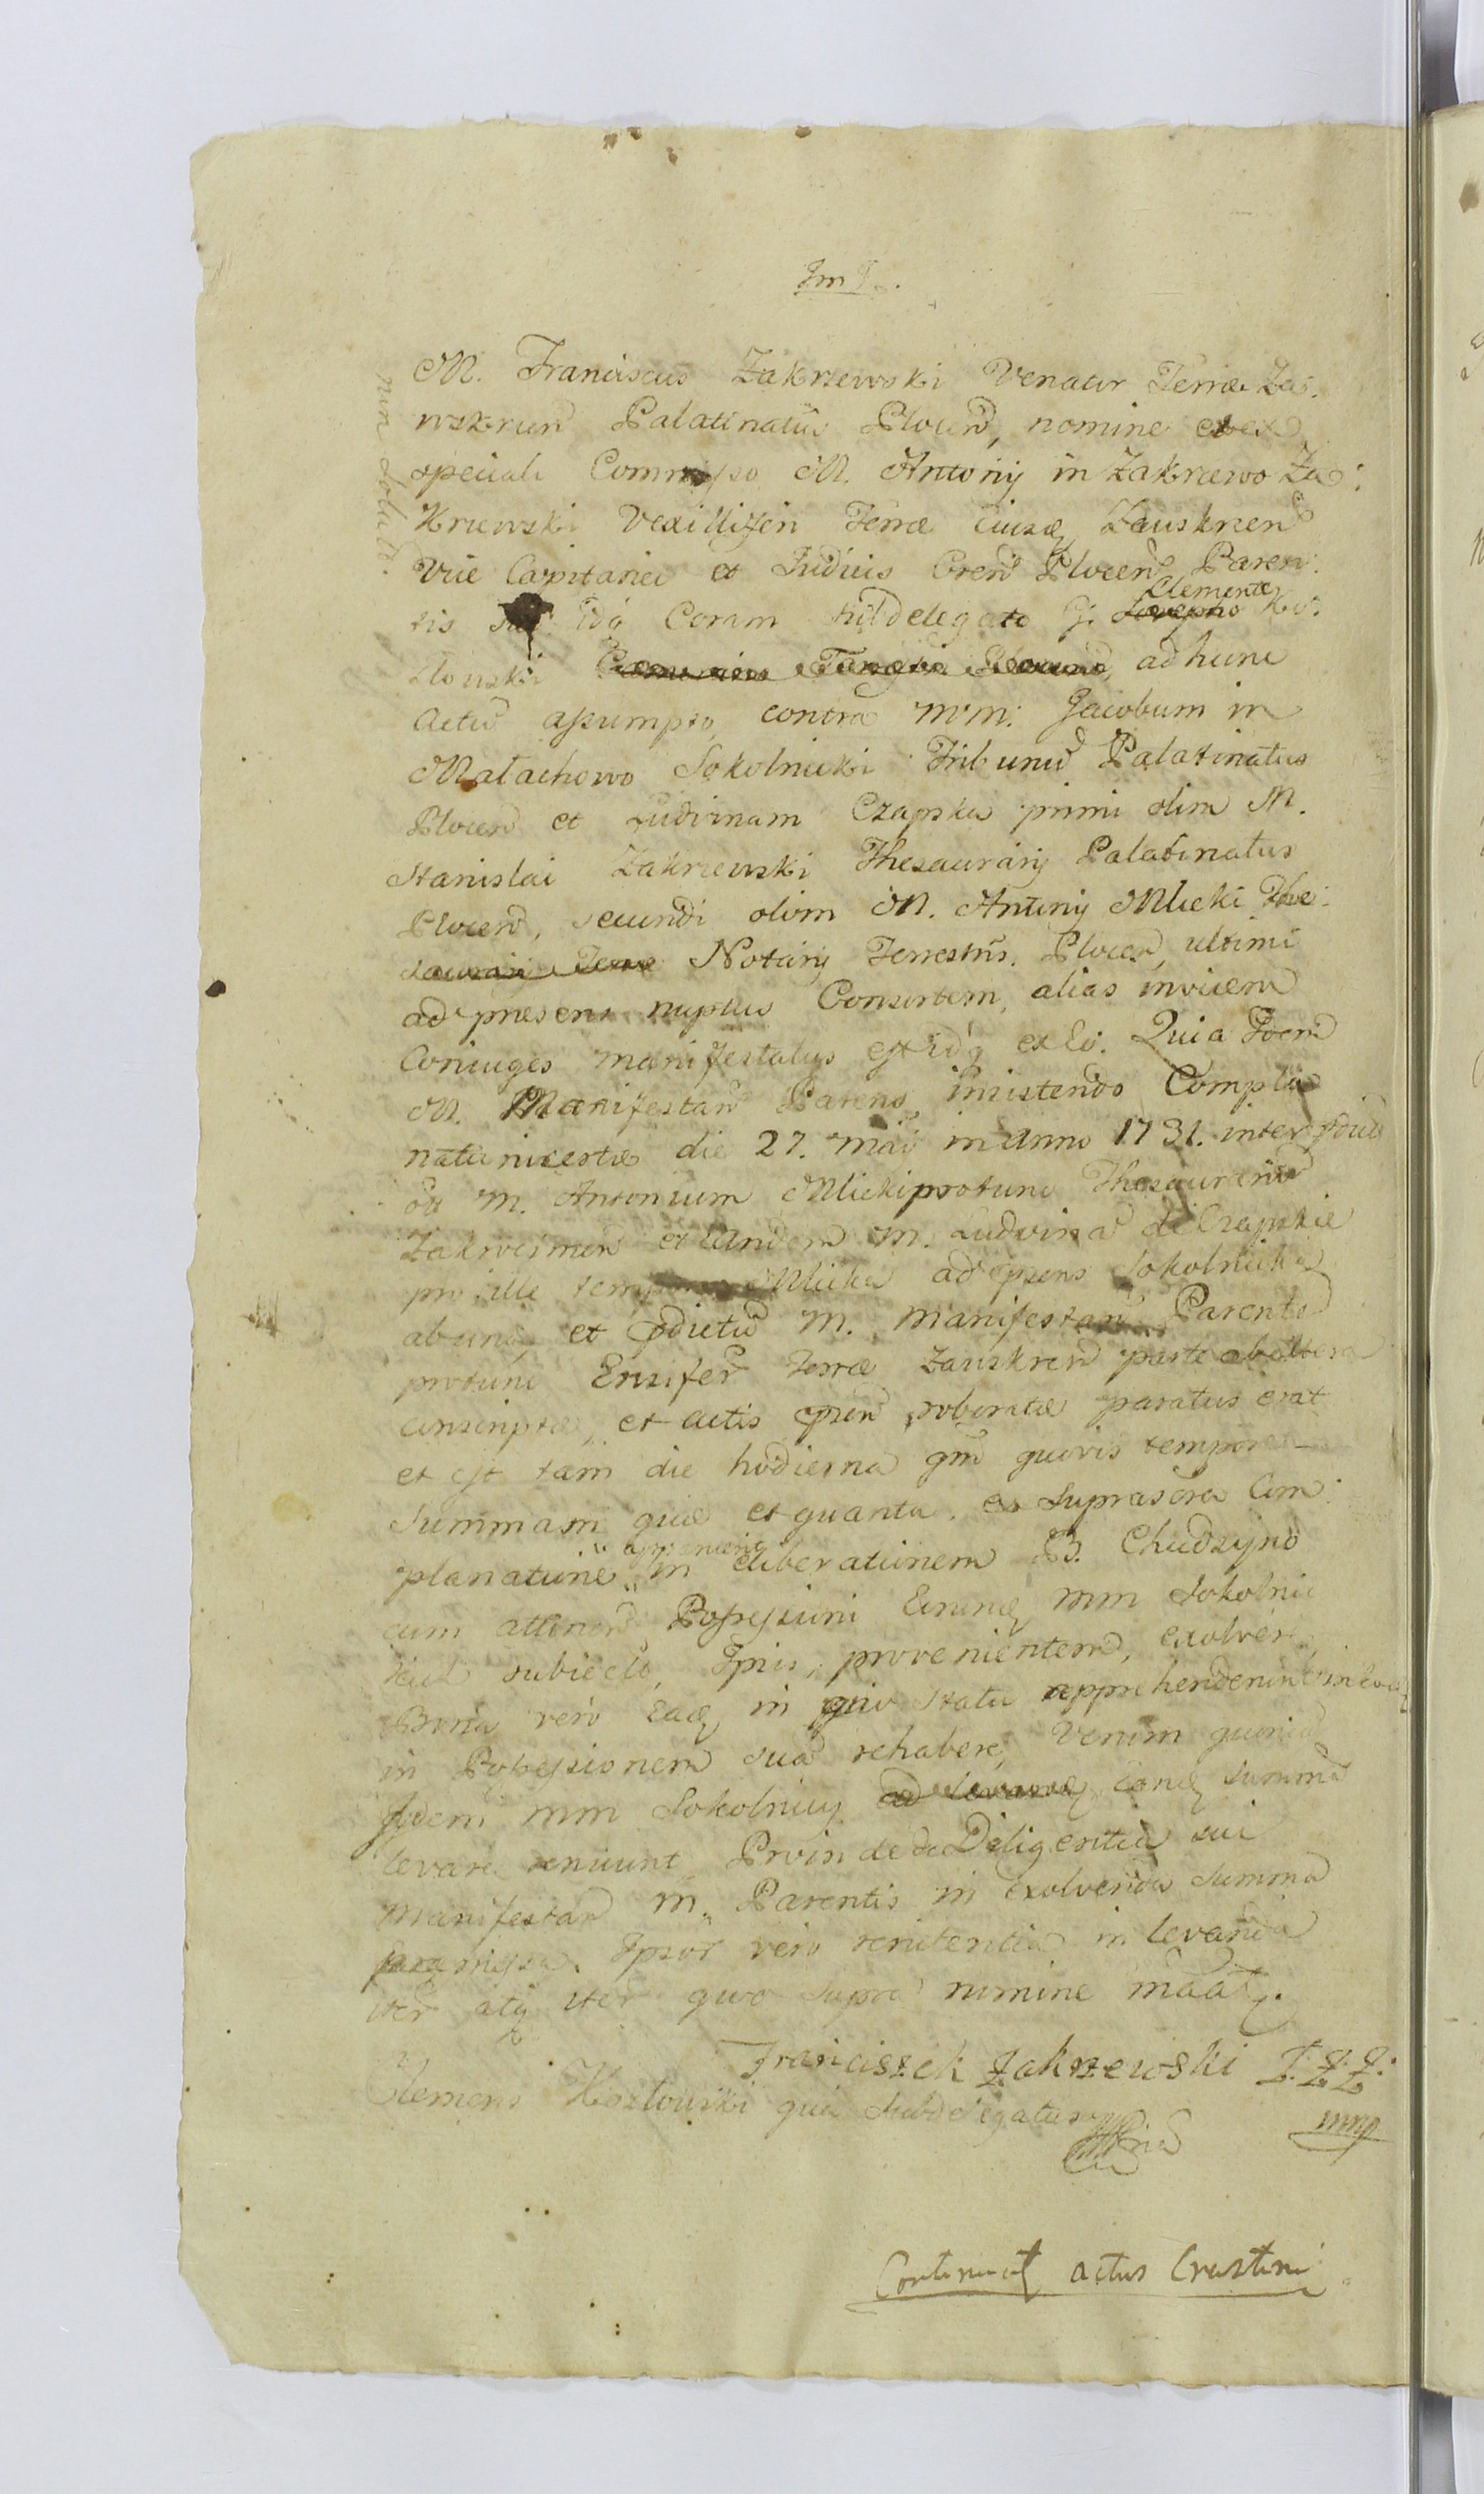 M. Franciscus Zakrzewski Venator Terræ Za:
wskrzen Palatinatus Plocen, nomine et ex
speciali Commisso M. Antonij in Zakrzewo Za:
krzewski Vexilliferi Terræ eiusdq Zauskrzen
Vice Capitanei et Judicis Cren Plocen Paren:
tis sui idq Coram subdelegato G. Josepho Clemente Ko:
zlowski ad hunc
Actū assumpto, contra mm: Jacobum in
Małachowo Sokolnicki Tribunū Palatinatus
Plocen et Ludvinam Czapska primi olim M.
Stanislai Zakrzewski Thesaurarij Palatinatus
Plocen, secundi olim M. Antonij Mlicki The:
saurarij Terræ Notarij Terrestris Plocen, ultimi
ad præsens nuptus Consortem, alias invicem
Coniuges manifestatus est idq ex eo. Quia Idem
M. Manifestan Parens, insistendo Compla
nationi certæ die 27. Maij in Anno 1731. inter
M. Antonium Mlicki protunc Thesaurariū
Zakrocimen et eandem M. Ludvina de Czapskie
pro illo tempore Mlicka ad præns Sokolnicka
ab una, et M. Manifestan Parente
protunc Ensifer Terræ Zauskren parte ab altera
conscriptæ, et Actis roboratæ paratus erat
et est tam die hodierna qm quovis tempore
Summam quæ et quanta, ex suprascra Com:
planatione in eliberationem B. Chudzyno
cum attinen Possessioni Eorundq mm Sokolnic
subiecto, Ipsis, provenientem, exolvere,
Bona vero Eadq in quo statu apprehenderint in Eodq
in Possessionem suā rehabere, Verum quoniā
Iidem mm Sokolnicij ad levandq eandq summā
levare renuunt, Proinde de Diligentia sui
Manifestan M. Parentis in exolvenda summa
præmissa, Ipsor vero renitentia in levanda
iter atq iter quo supra nomine
Franciszek Zakrzewski Ł. Z. Z.
mmp
Clemens Kozłowski qua Subdelegatus
Continuat actus Crastini